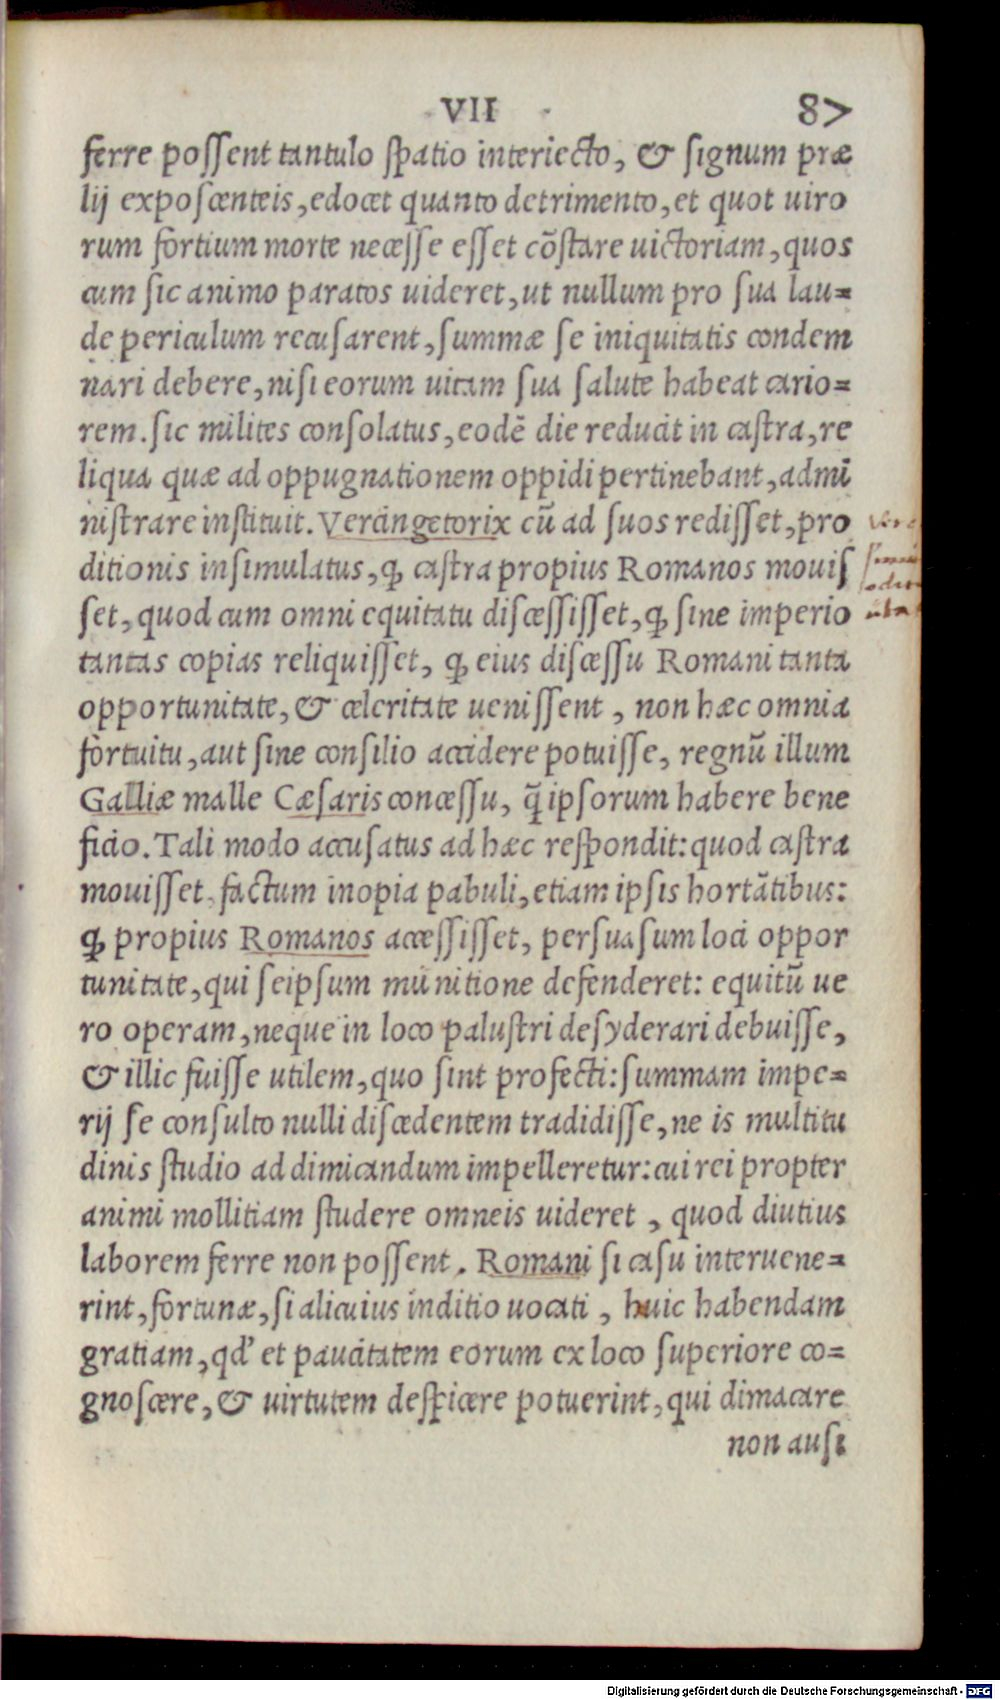 VII 87
ferre possent tantulo spatio interiecto, & signum præ
lij exposcenteis, edocet quanto detrimento, et quot uiro
rum fortium morte necesse esset cõstare uictoriam, quos
cum sic animo paratos uideret, ut nullum pro sua lau=
de periculum recusarent, summæ se iniquitatis condem
nari debere, nisi eorum uitam sua salute habeat cario=
rem. sic milites consolatus, eodẽ die reducit in castra, re
liqua quæ ad oppugnationem oppidi pertinebant, admĩ
nistrare instituit. Vercingetorix cũ ad suos redisset, pro
ditionis insimulatus, ꝙ castra propius Romanos mouis
set, quod cum omni equitatu discessisset, ꝙ sine imperio
tantas copias reliquisset, ꝙ eius discessu Romani tanta
opportunitate, & celeritate uenissent, non hæc omnia
fortuitu, aut sine consilio accidere potuisse, regnũ illum
Galliæ malle Cæsaris concessu, q̃ ipsorum habere bene
ficio. Tali modo accusatus ad hæc respondit: quod castra
mouisset, factum inopia pabuli, etiam ipsis hortãtibus:
ꝙ propius Romanos accessisset, persuasum loci oppor
tunitate, qui seipsum munitione defenderet: equitũ ue
ro operam, neque in loco palustri desyderari debuisse,
& illic fuisse utilem, quo sint profecti: summam impe=
rij se consulto nulli discedentem tradidisse, ne is multitu
dinis studio ad dimicandum impelleretur: cui rei propter
animi mollitiam studere omneis uideret, quod diutius
laborem ferre non possent. Romani si casu interuene=
rint, fortunæ, si alicuius inditio uocati, huic habendam
gratiam, qd' et paucitatem eorum ex loco superiore co=
gnoscere, & uirtutem despicere potuerint, qui dimacare
non ausi
Digitalisierung gefördert durch die Deutsche Forschungsgemeinschaft - DFG